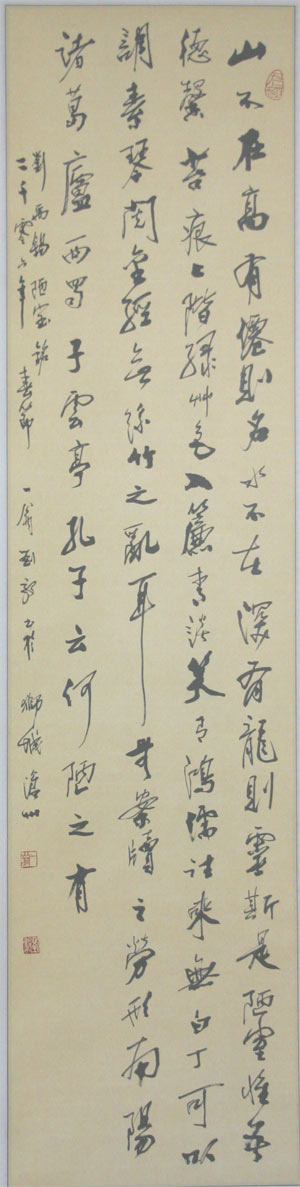 山不在高有僊則名水不在深有龍則靈斯是陋室惟吾
德馨苔痕上階綠艸色入簾青談笑有鴻儒往來無白丁可以
調素琴閱金經無絲竹之亂耳無案牘之勞形南陽
諸葛廬西蜀子雲亭孔子云何陋之有
劉禹錫陋室銘
二千零六年春節